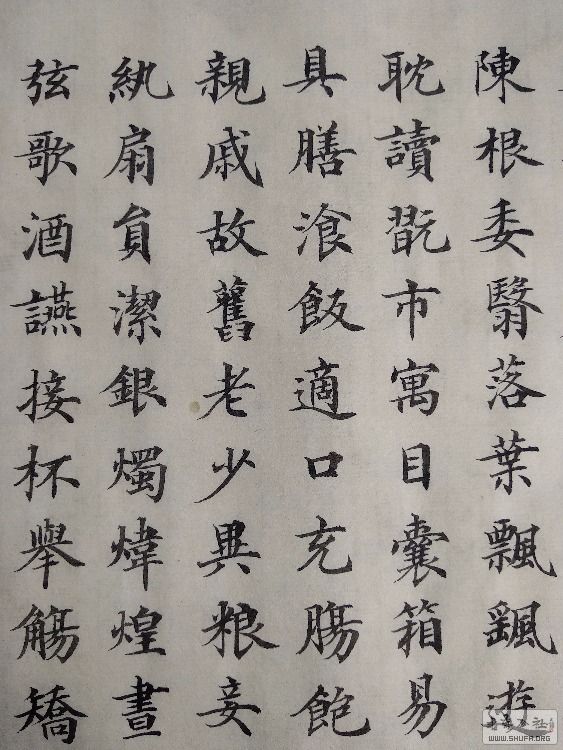 陳根委翳落葉飄颻遊
耽讀翫市寓目囊箱易
具膳湌飯適口充腸飽
親戚故舊老少異粮妾
紈扇員潔銀燭煒煌晝
弦歌酒讌接杯舉觴矯
WWW.SHUFA.ORG